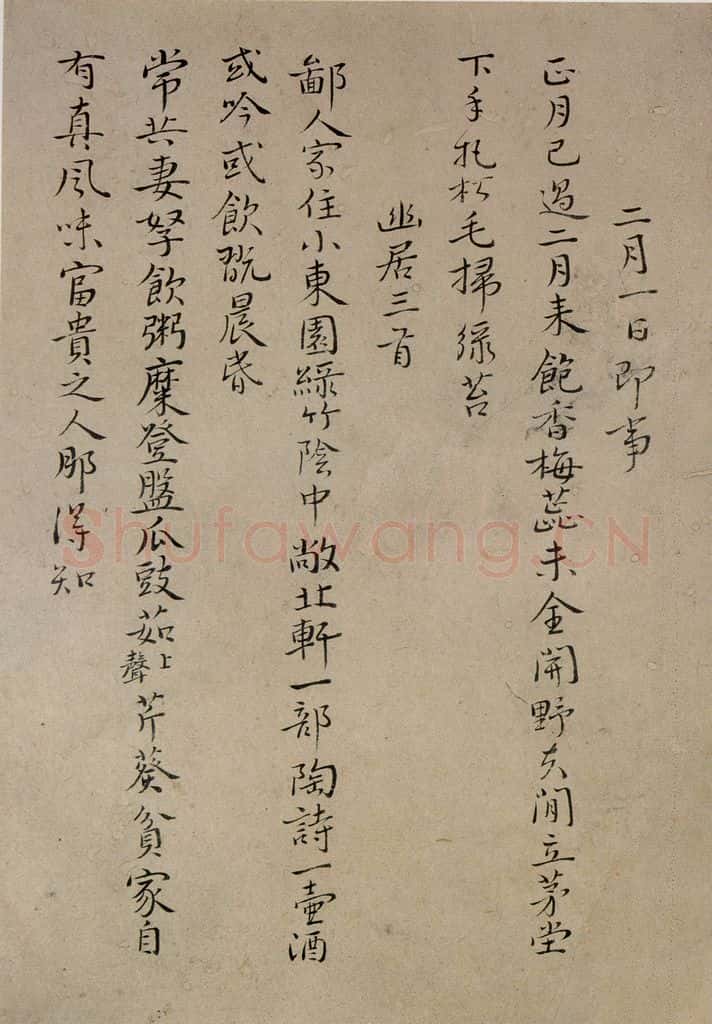 二月一日即事
正月已過二月来飽香梅蕊未全開野夫閒立茅堂
下手把松毛掃緑苔
幽居三首
鄙人家住小東園緑竹陰中敞北軒一部陶詩一壷酒
或吟或飲翫晨昏
常共妻孥飲粥糜登盤瓜豉茹上聲芹葵貧家自
有真風味富貴之人那得知
Shufawang.CN